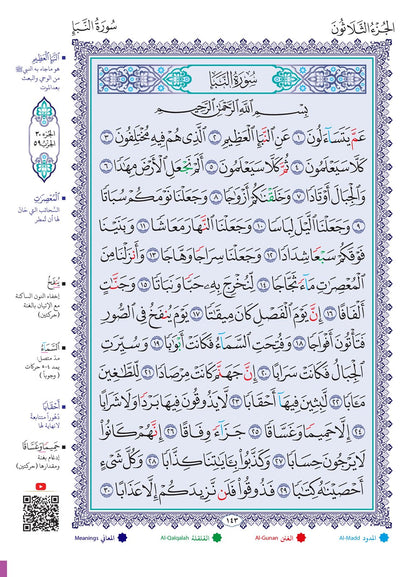 الجزء الثلاثون
سورة النبأ
سُورَةُ النَّبَإِ
بِسْمِ اللَّهِ الرَّحْمَٰنِ الرَّحِيمِ
عَمَّ يَتَسَآءَلُونَ ١ عَنِ ٱلنَّبَإِ ٱلْعَظِيمِ ٢ ٱلَّذِى هُمْ فِيهِ مُخْتَلِفُونَ ٣
كَلَّا سَيَعْلَمُونَ ٤ ثُمَّ كَلَّا سَيَعْلَمُونَ ٥ أَلَمْ نَجْعَلِ ٱلْأَرْضَ مِهَٰدًا ٦
وَٱلْجِبَالَ أَوْتَادًا ٧ وَخَلَقْنَٰكُمْ أَزْوَٰجًا ٨ وَجَعَلْنَا نَوْمَكُمْ سُبَاتًا
٩ وَجَعَلْنَا ٱلَّيْلَ لِبَاسًا ١٠ وَجَعَلْنَا ٱلنَّهَارَ مَعَاشًا ١١ وَبَنَيْنَا
فَوْقَكُمْ سَبْعًا شِدَادًا ١٢ وَجَعَلْنَا سِرَاجًا وَهَّاجًا ١٣ وَأَنزَلْنَا مِنَ
ٱلْمُعْصِرَٰتِ مَآءً ثَجَّاجًا ١٤ لِّنُخْرِجَ بِهِۦ حَبًّا وَنَبَاتًا ١٥ وَجَنَّٰتٍ
أَلْفَافًا ١٦ إِنَّ يَوْمَ ٱلْفَصْلِ كَانَ مِيقَٰتًا ١٧ يَوْمَ يُنفَخُ فِى ٱلصُّورِ
فَتَأْتُونَ أَفْوَاجًا ١٨ وَفُتِحَتِ ٱلسَّمَآءُ فَكَانَتْ أَبْوَٰبًا ١٩ وَسُيِّرَتِ
ٱلْجِبَالُ فَكَانَتْ سَرَابًا ٢٠ إِنَّ جَهَنَّمَ كَانَتْ مِرْصَادًا ٢١ لِّلطَّٰغِينَ
مَـَٔابًا ٢٢ لَّٰبِثِينَ فِيهَآ أَحْقَابًا ٢٣ لَّا يَذُوقُونَ فِيهَا بَرْدًا وَلَا شَرَابًا
٢٤ إِلَّا حَمِيمًا وَغَسَّاقًا ٢٥ جَزَآءً وِفَاقًا ٢٦ إِنَّهُمْ كَانُوا۟
لَا يَرْجُونَ حِسَابًا ٢٧ وَكَذَّبُوا۟ بِـَٔايَٰتِنَا كِذَّابًا ٢٨ وَكُلَّ شَىْءٍ
أَحْصَيْنَٰهُ كِتَٰبًا ٢٩ فَذُوقُوا۟ فَلَن نَّزِيدَكُمْ إِلَّا عَذَابًا ٣٠
١٤٣
النَّبَإِ الْعَظِيمِ
هو ما جاء به النبي ﷺ
من الوحي والبعث
بعد الموت
الجزء ٣٠
الحزب ٥٩
الْمُعْصِرَاتِ
السحائب التي حان
لها أن تمطر
يُنفَخُ
إخفاء النون الساكنة
مع الإتيان بالغنة
(حركتين)
السَّمَآءُ
مد متصل
يمد ٤-٥ حركات
(وجوباً)
أَحْقَابًا
دهوراً متتابعة
لا نهاية لها
حَمِيمًا وَغَسَّاقًا
إدغام بغنة
ومقدارها (حركتين)
المدود Al-Madd
الغنن Al-Gunan
القلقلة Al-Qalqalah
المعاني Meanings